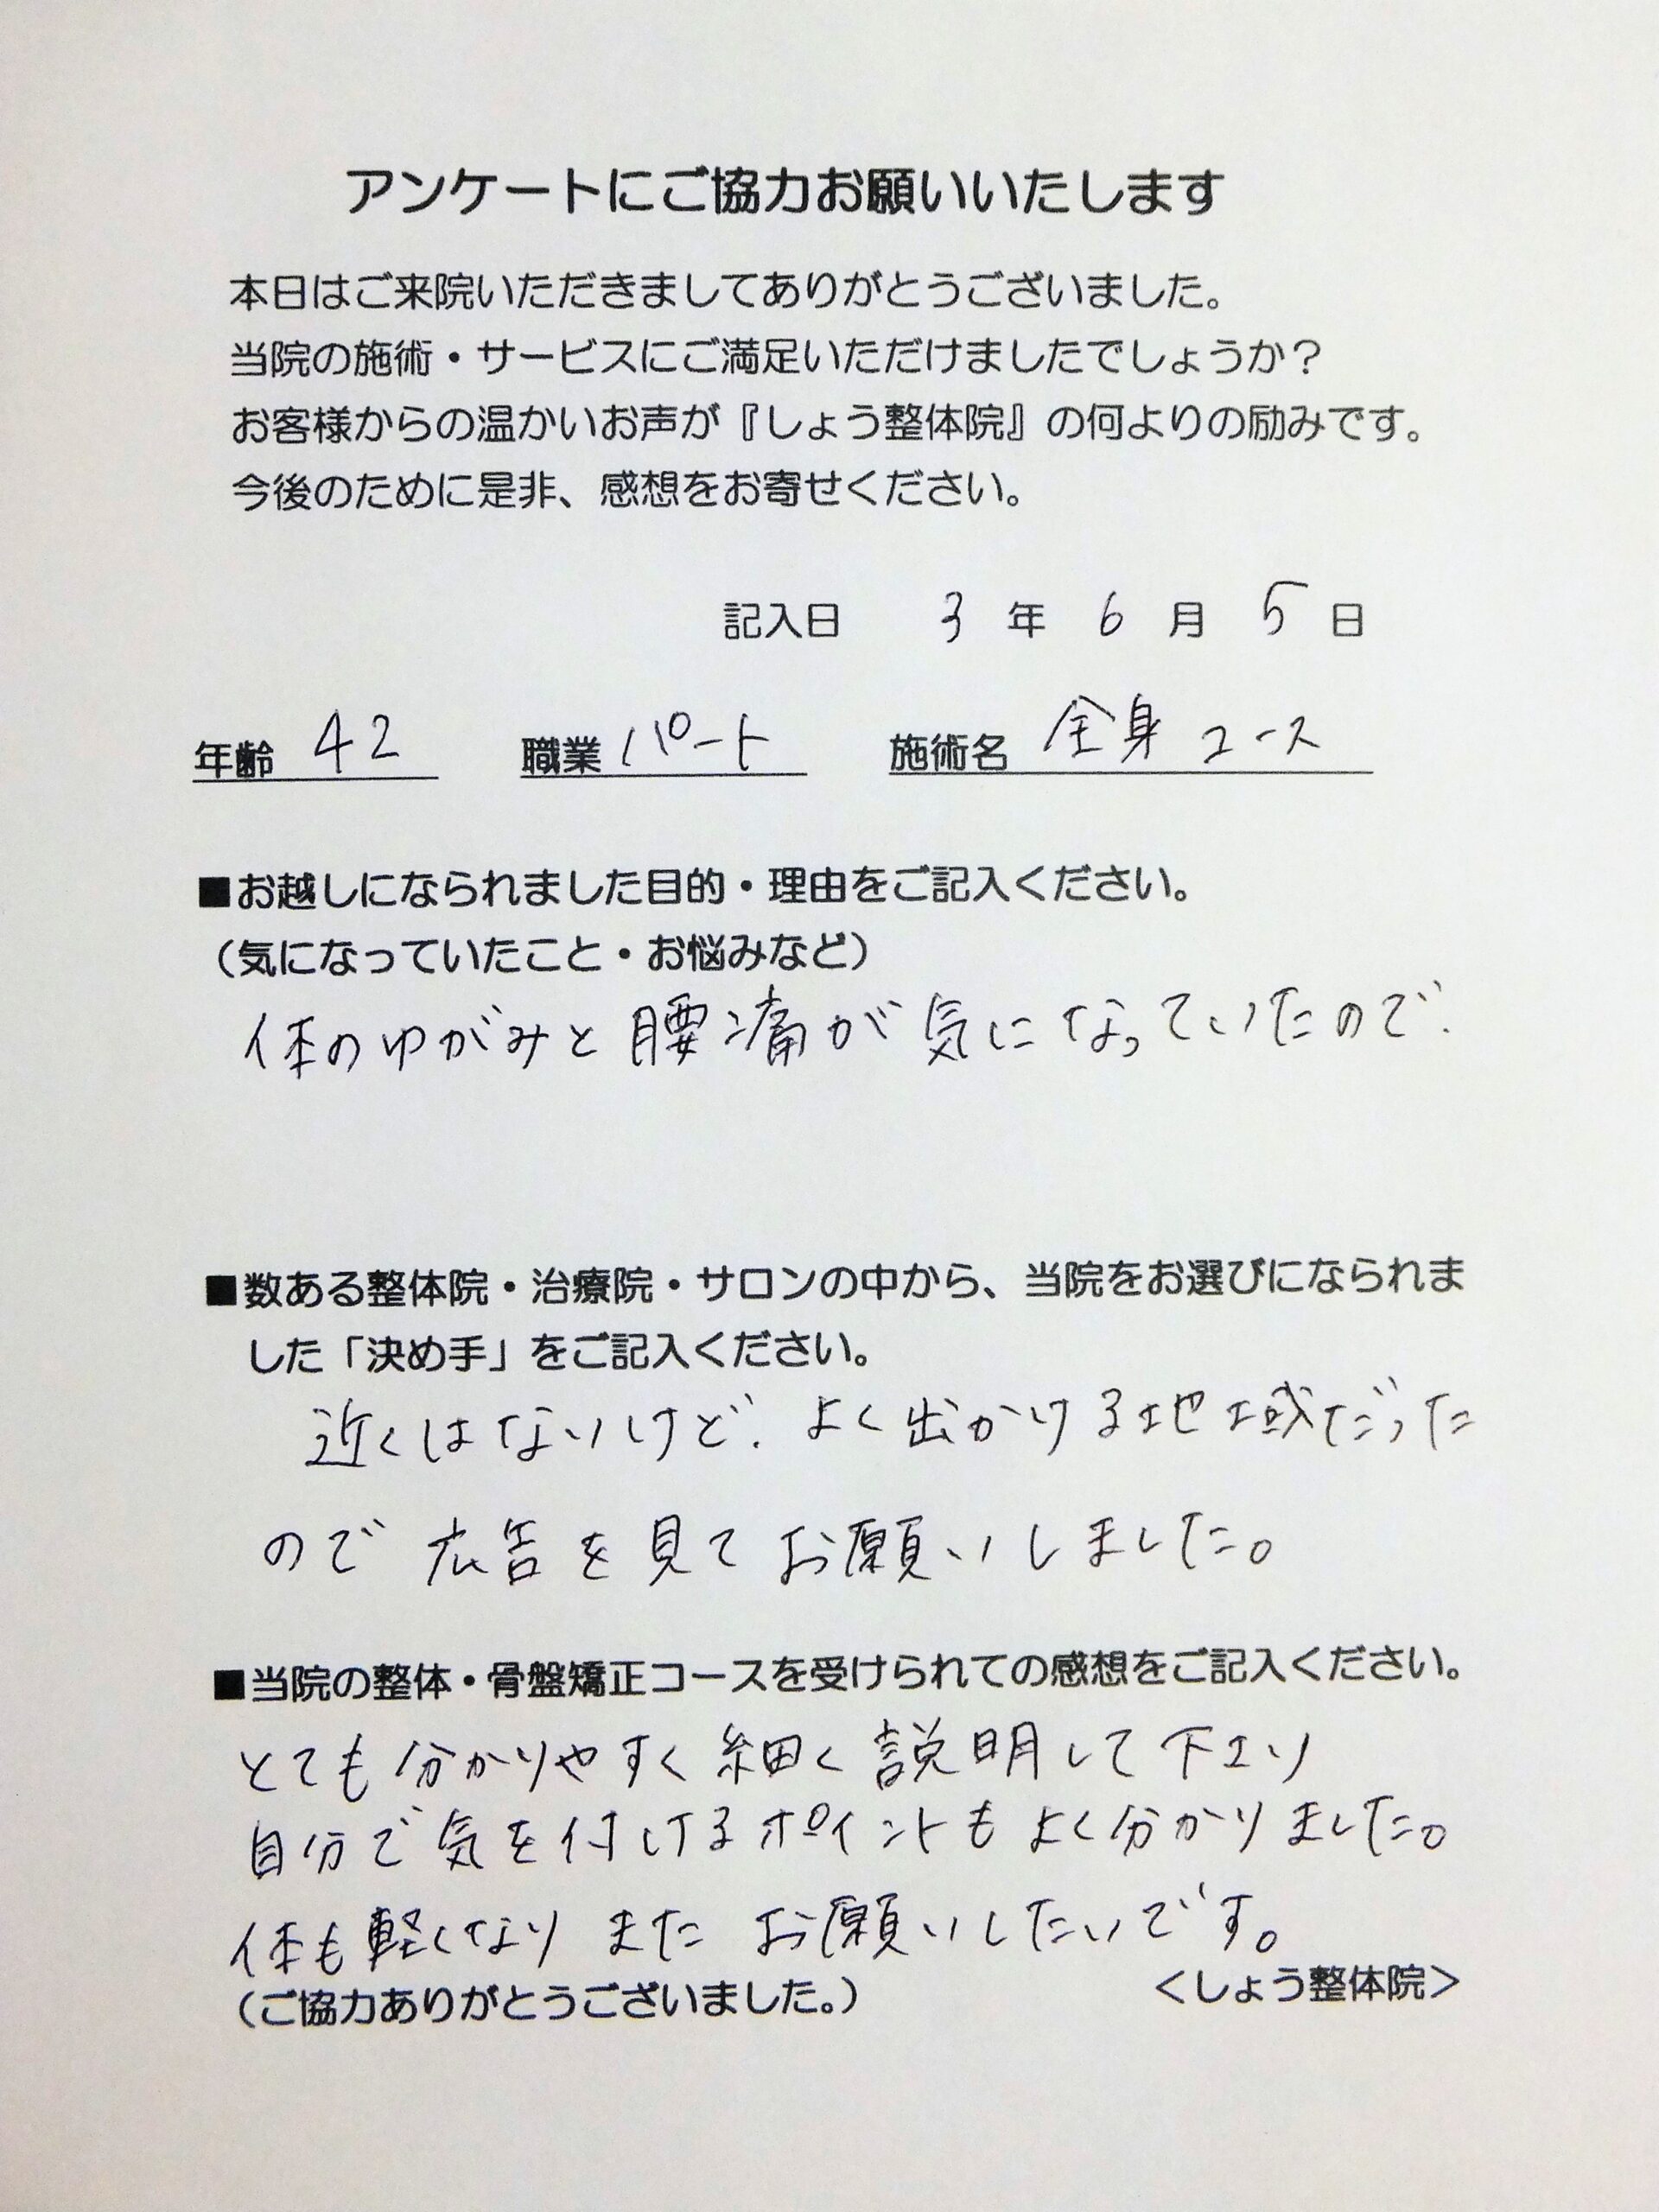 アンケートにご協力お願いいたします
本日はご来院いただきましてありがとうございました。
当院の施術・サービスにご満足いただけましたでしょうか？
お客様からの温かいお声が『しょう整体院』の何よりの励みです。
今後のために是非、感想をお寄せください。
記入日 3 年 6 月 5 日
年齢 42 職業 パート 施術名 全身コース
■お越しになられました目的・理由をご記入ください。
（気になっていたこと・お悩みなど）
体のゆがみと腰痛が気になっていたので.
■数ある整体院・治療院・サロンの中から、当院をお選びになられま
した「決め手」をご記入ください。
近くはないけど、よく出かける地域だった
ので広告を見てお願いしました。
■当院の整体・骨盤矯正コースを受けられての感想をご記入ください。
とても分かりやすく細く説明して下エリ
自分で気を付けるポイントもよく分かりました。
体も軽くなり またお願いしたいです。
（ご協力ありがとうございました。） ＜しょう整体院＞